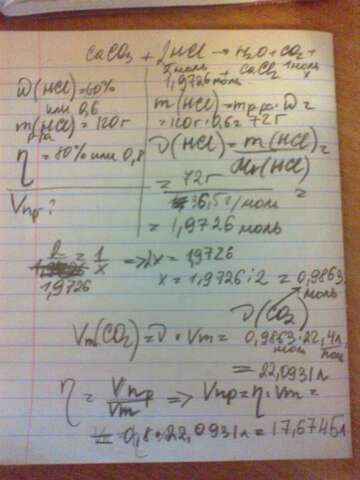 CaCO3 + 2HCl → H2O + CO2 +
2моль 1моль
1,9726моль + CaCl2 x
ω(HCl) = 60%
или 0,6
m(HCl) = 120г
р-ра
η = 80% или 0,8
Vпр?
m(HCl) = mр-ра · ω =
= 120г · 0,6 = 72г
ν(HCl) = m(HCl) =
Mr(HCl)
= 72г =
36,5г/моль
= 1,9726моль
2 = 1 => 2x = 1,9726
1,9726 x
x = 1,9726 : 2 = 0,9863
моль
ν(CO2)
Vm(CO2) = ν · Vm = 0,9863 · 22,4 л
моль моль
= 22,0931л
η = Vпр => Vпр = η · Vm =
Vm
= 0,8 · 22,0931л = 17,6745л